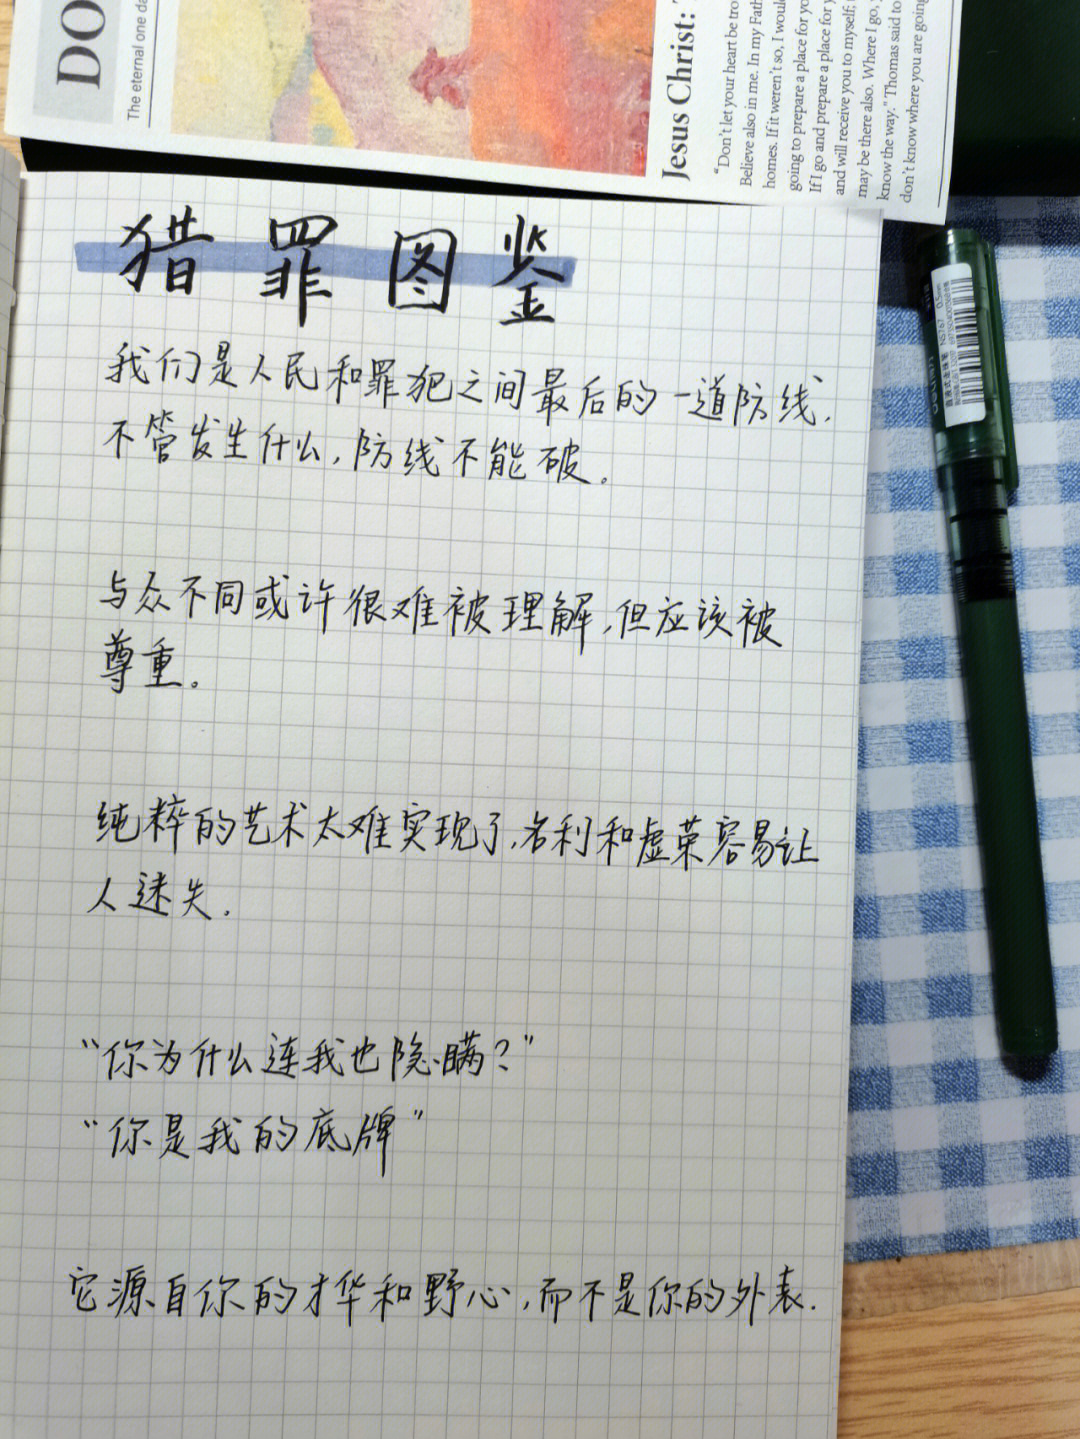 DO
The eternal one da
Jesus Christ:
“Don't let your heart be tro
Believe also in me. In my Fath
homes. If it weren't so, I would
going to prepare a place for yo
If I go and prepare a place for y
and will receive you to myself;
may be there also. Where I go,
know the way.” Thomas said to
don't know where you are going
猎罪图鉴
我们是人民和罪犯之间最后的一道防线.
不管发生什么,防线不能破。
与众不同或许很难被理解,但应该被
尊重。
纯粹的艺术太难实现了,名利和虚荣容易让
人迷失.
“你为什么连我也隐瞒?”
“你是我的底牌”
它源自你的才华和野心,而不是你的外表.
deli
NS767 0.5mm